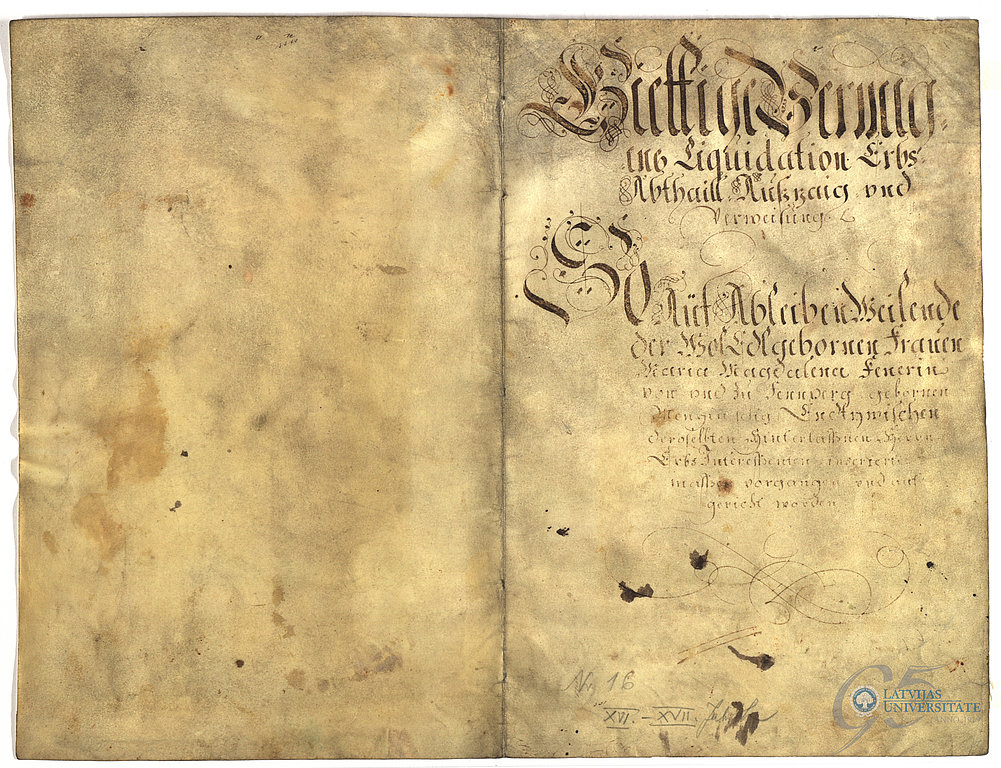 Gietlige Vermig
ens Liquidation Erbs
Abthaill Außzaig vnd
Verweisung
So
Auf Ableiben Weilende
der Wol Edlgebornen Frauen
Maria Magdalena Fenerin
von vnd zu Fennberg gebornen
Endtzwischen
deroselbten Hinterlassnen Herrn
Erbs Interessenten inserierter
massen vorgangen vnd auf
gericht worden
Nr 16
XVI. - XVII.
95
LATVIJAS
UNIVERSITATE
ANNO 1919